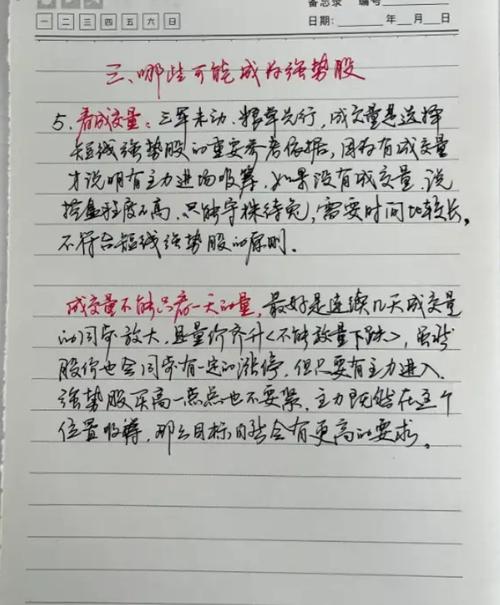 备忘录 编号
一 二 三 四 五 六 日
日期: 年 月 日
三、哪些可能成为强势股
5、看成交量:三军未动、粮草先行,成交量是选择
短线强势股的重要参考依据,因为有成交量
才说明有主力进场吸筹,如果没有成交量,说
控盘程度不高,只能守株待兔,需要时间比较长,
不符合短线强势股的原则.
成交量不能只看一天的量,最好是连续几天成交量
的同步放大,且量价齐升<不能放量下跌>,虽然
股价也会同步有一定的涨停,但只要有主力进入,
强势股买高一点点也不要紧,主力既然在这个
位置收筹,那么目标自然会有更高的要求。